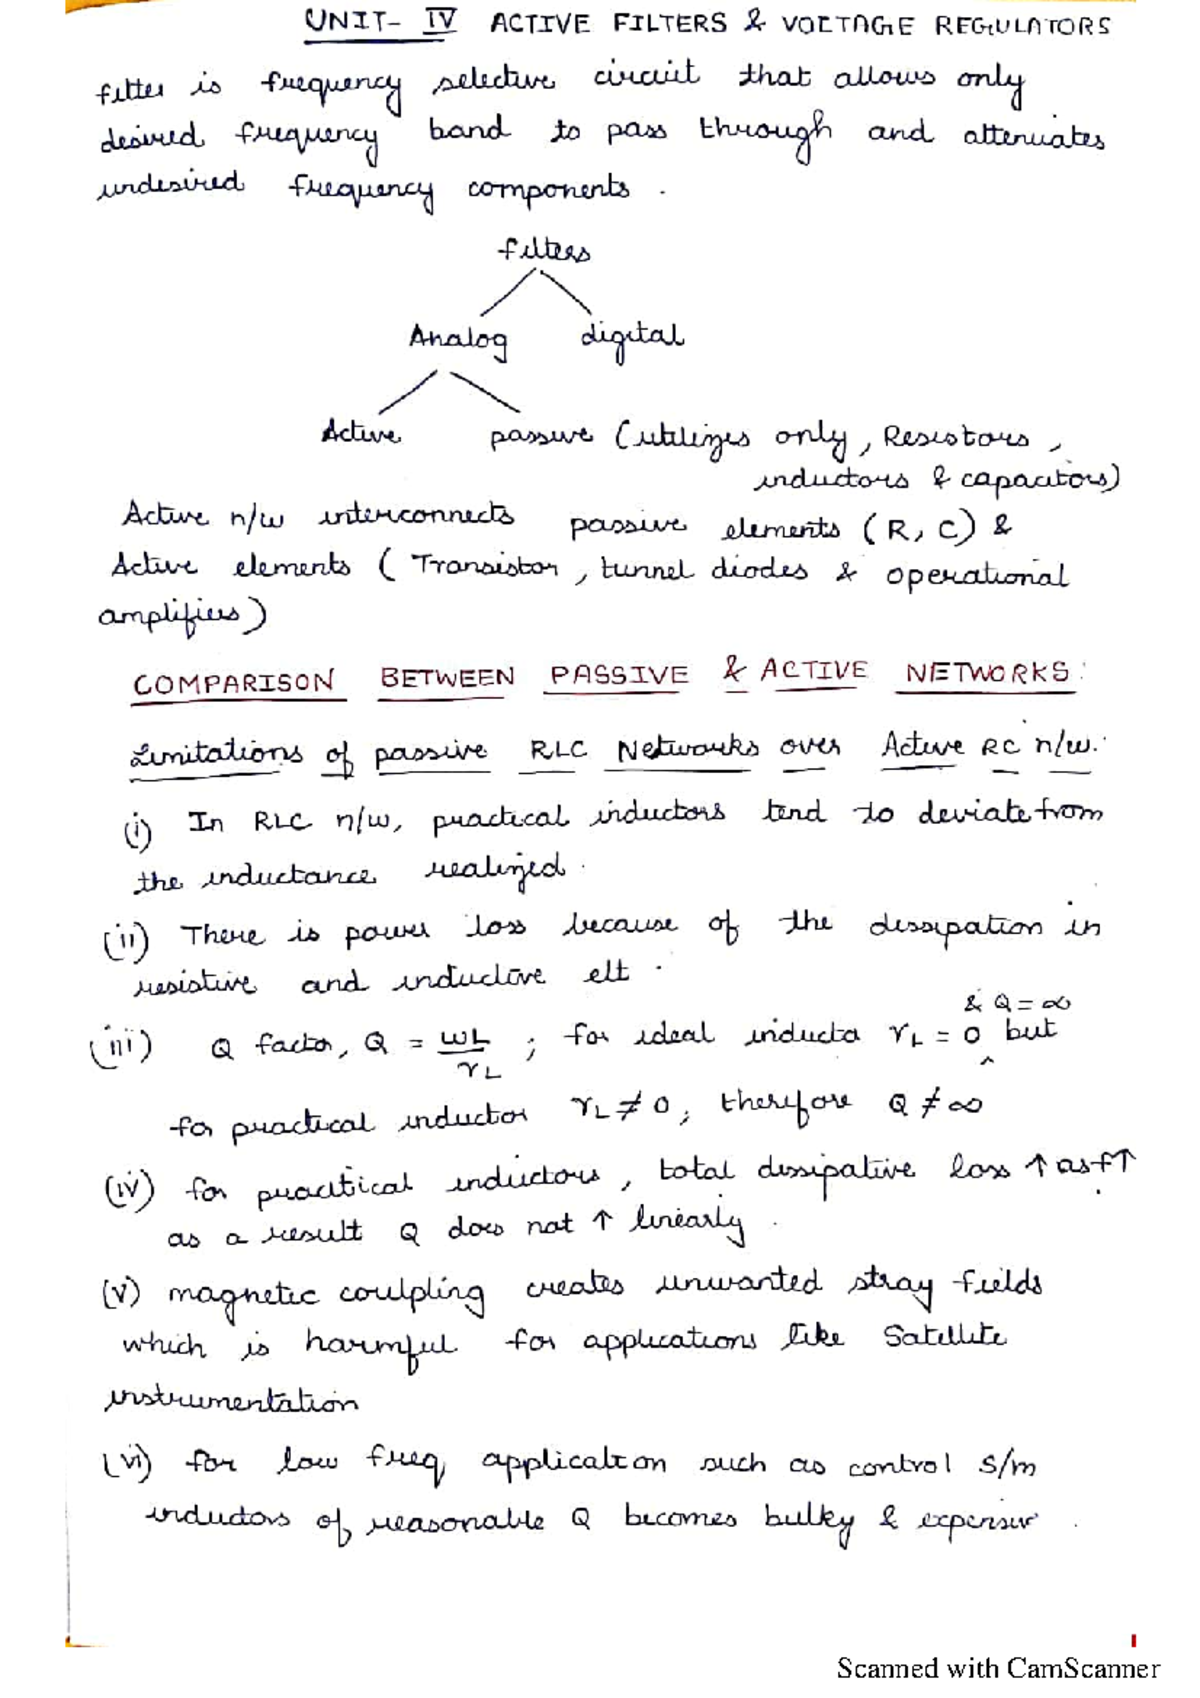 UNIT- IV ACTIVE FILTERS & VOLTAGE REGULATORS
filter is frequency selective circuit that allows only
desired frequency band to pass through and attenuates
undesired frequency components.
filters
Analog digital
Active passive (utilizes only, Resistors,
inductors & capacitors)
Active n/w interconnects passive elements (R, C) &
Active elements ( Transistor, tunnel diodes & operational
amplifiers)
COMPARISON BETWEEN PASSIVE & ACTIVE NETWORKS:
Limitations of passive RLC Networks over Active RC n/w.
(i) In RLC n/w, practical inductors tend to deviate from
the inductance realized.
(ii) There is power loss because of the dissipation in
resistive and inductive elt.
& Q = ∞
(iii) Q factor, Q = ωL/rL ; for ideal inducta rL = 0 ^ but
for practical inductor rL ≠ 0, therefore Q ≠ ∞
(iv) for practical inductors, total dissipative loss ↑ as f↑
as a result Q does not ↑ linearly.
(v) magnetic coulpling creates unwanted stray fields
which is harmful for applications like Satellite
instrumentation
(vi) for low freq application such as control s/m
inductors of reasonable Q becomes bulky & expensive.
1
Scanned with CamScanner